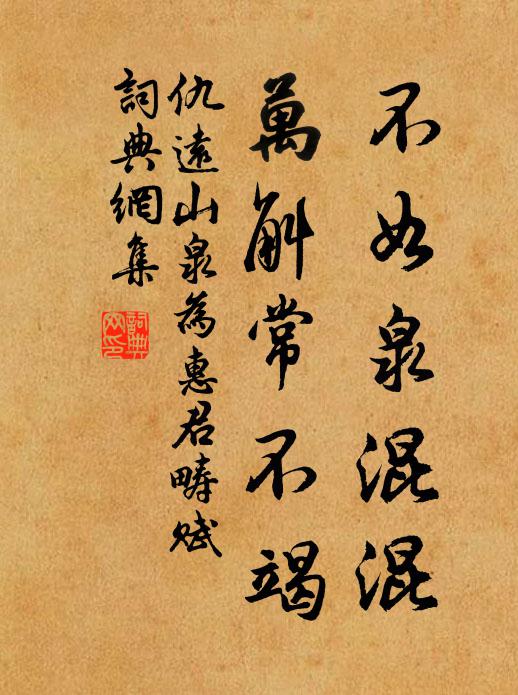 不如泉混混
萬斛常不竭
仇遠山泉為惠君疇賦
詞典網集
詞典
網印